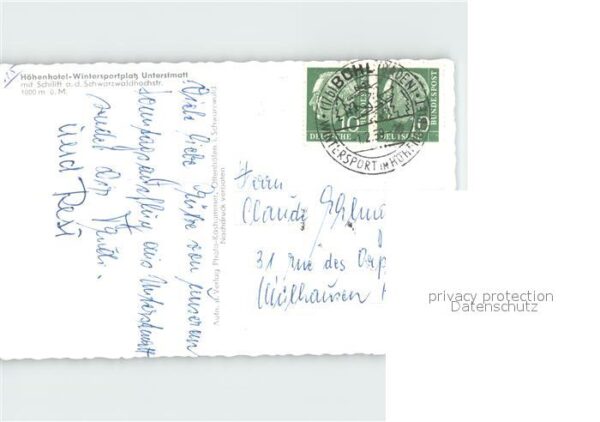 Höhenhotel-Wintersportplatz Unterstmatt
mit Schilift a. d. Schwarzwaldhochstr.
1000 m ü. M.
Viele liebe Grüße von unserem
Sonntagsausflug aus Unterstmatt
sendet Dir
und Resi
Autn. u. Verlag Photo-Kastnummer, Ottenhöfen i. Schwarzwald
Nachdruck verboten
(17b) BÜHL (BADEN)
WINTERSPORT IN HÖHEN
10
DEUTSCHE BUNDESPOST
10
DEUTSCHE BUNDESPOST
Herrn
Claude
31 rue des
Mülhausen
privacy protection
Datenschutz